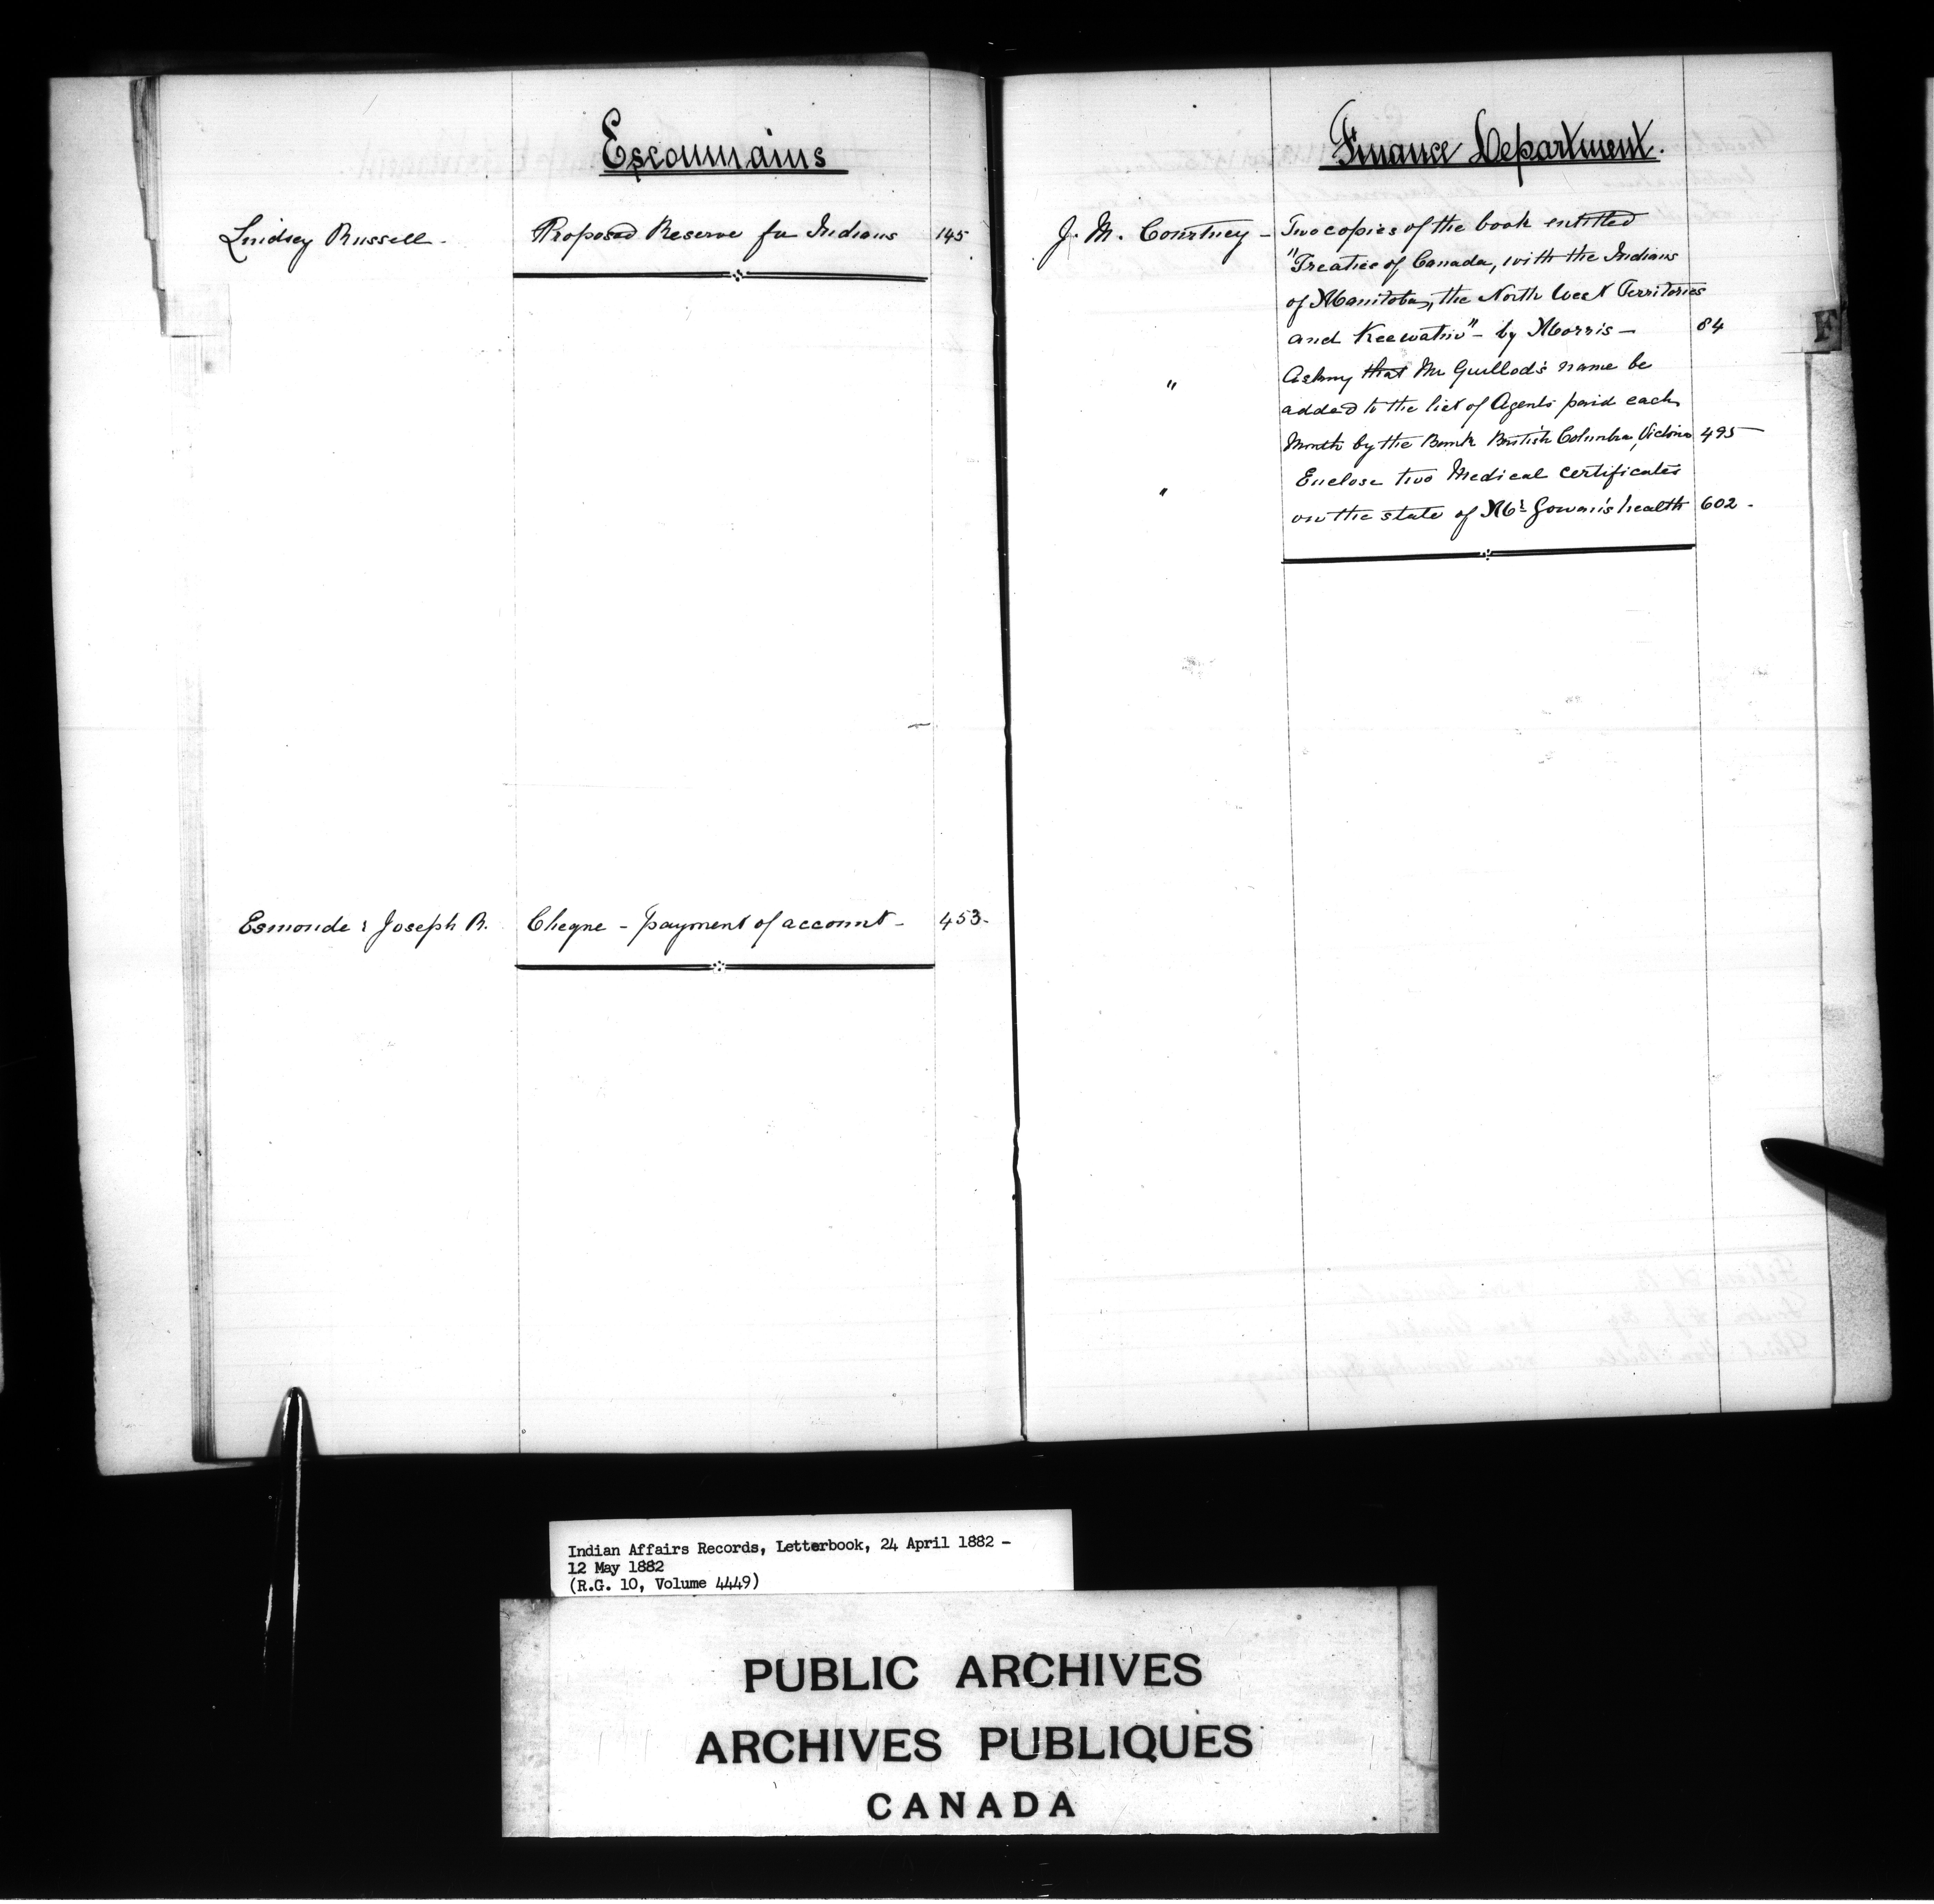 Escoumains
Lindsey Russell. Proposed Reserve for Indians 145
Esmonde; Joseph R. Cheque - payment of account - 453-
Finance Department.
J. M. Courtney - Two copies of the book entitled
"Treaties of Canada, with the Indians
of Manitoba, the North West Territories
and Keewatin" - by Morris - 84
" Asking that Mr Guillod's name be
added to the list of Agents paid each
Month by the Bank British Columbia, Victoria 495
" Enclose two Medical certificates
on the state of Mc Gowan's health 602.
F
Indian Affairs Records, Letterbook, 24 April 1882 -
12 May 1882
(R.G. 10, Volume 4449)
PUBLIC ARCHIVES
ARCHIVES PUBLIQUES
CANADA